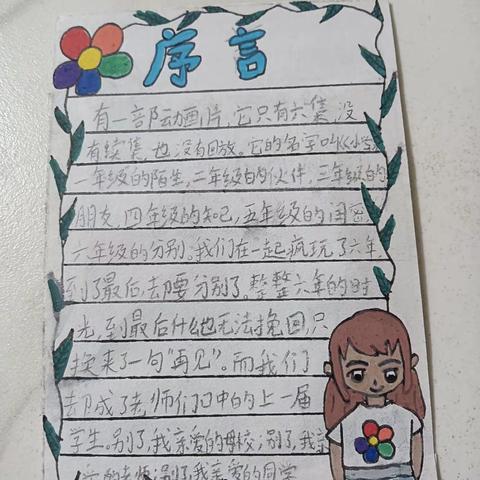 序言
有一部动画片,它只有六集,没
有续集,也没有回放。它的名字叫《小学》
一年级的陌生,二年级的伙伴,三年级的
朋友,四年级的知己,五年级的闺密,
六年级的分别。我们在一起疯玩了六年,
到了最后,去腰分别了。整整六年的时
光,到最后什么也无法挽回只
换来了一句“再见”。而我们
去成了老师们口中的上一届
学生。别了,我亲爱的母校;别了,我亲
的老师;别了,我亲爱的同学